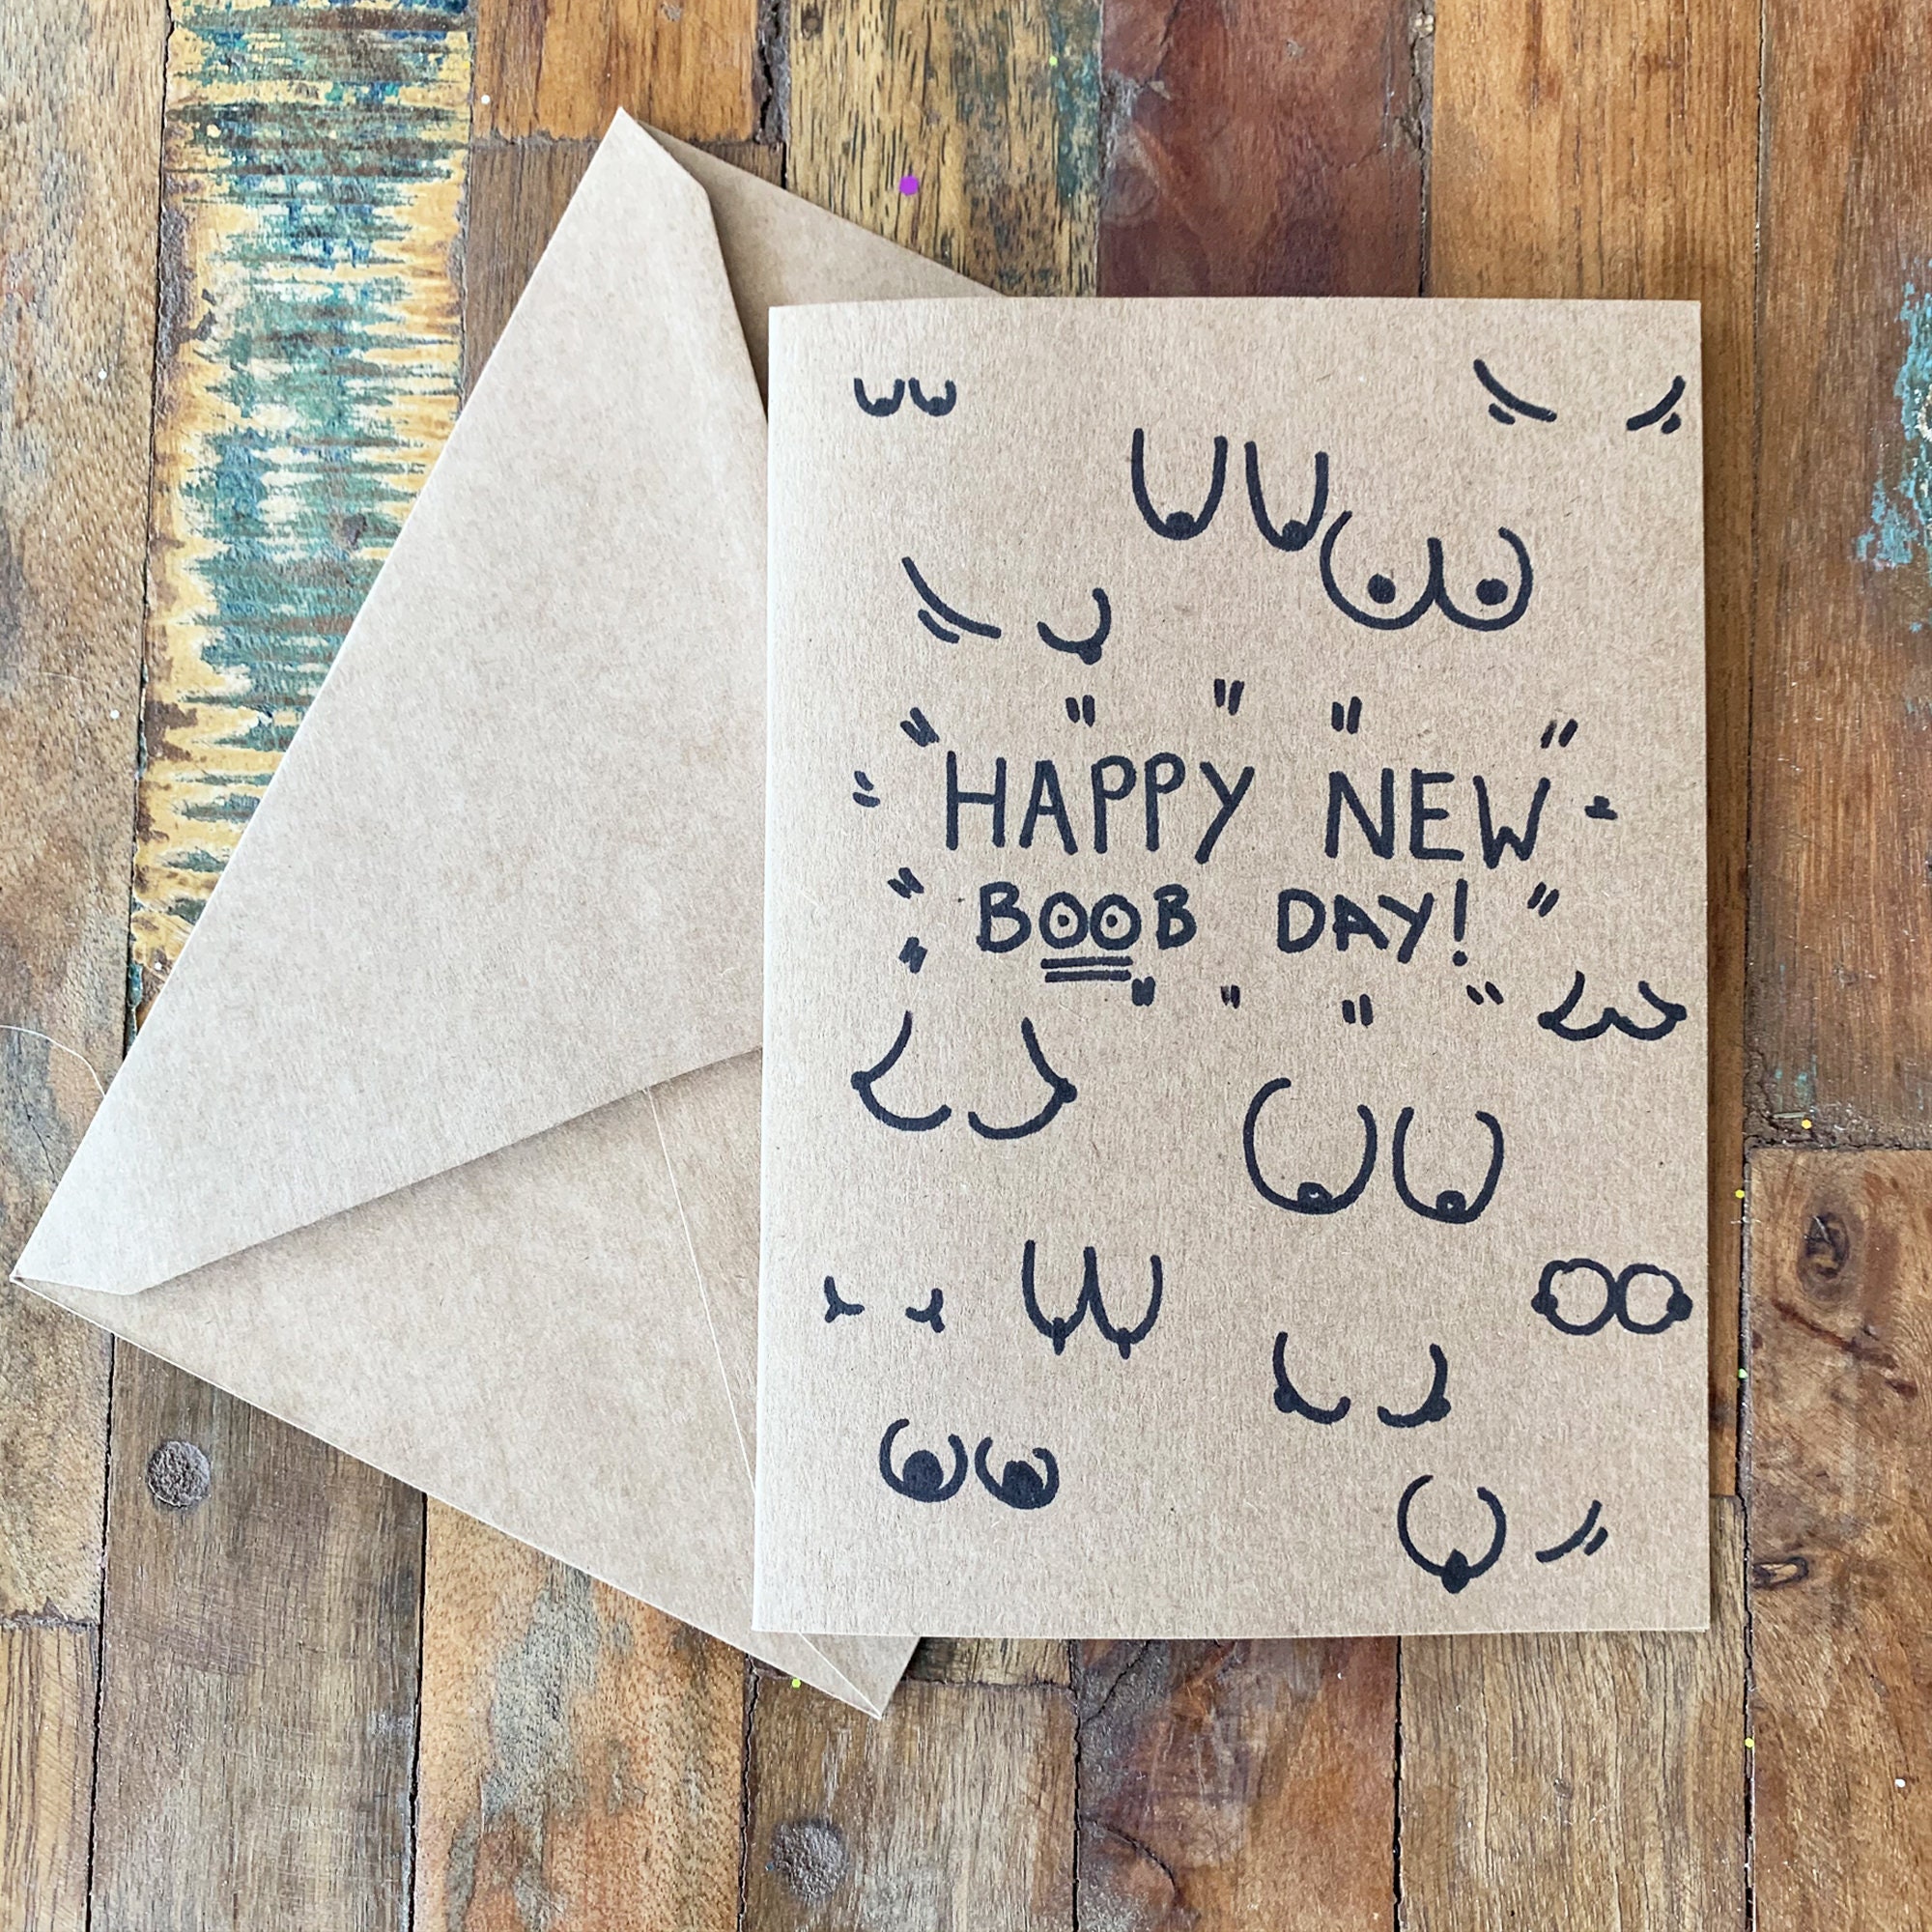 HAPPY NEW
BOOB DAY!